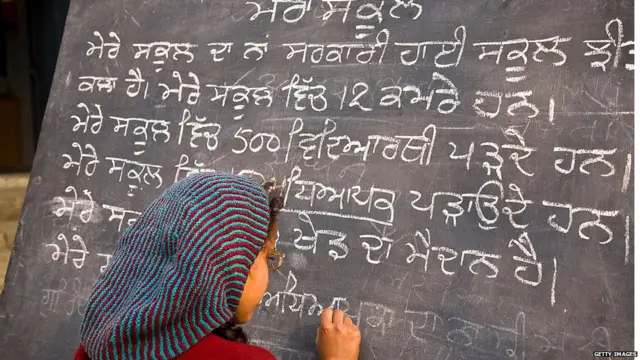 ਮੇਰਾ ਸਕੂਲ
ਮੇਰੇ ਸਕੂਲ ਦਾ ਨਾਂ ਸਰਕਾਰੀ ਹਾਈ ਸਕੂਲ
ਹੈ। ਮੇਰੇ ਸਕੂਲ ਵਿੱਚ 12 ਕਮਰੇ ਹਨ।
ਮੇਰੇ ਸਕੂਲ ਵਿੱਚ 500 ਵਿਦਿਆਰਥੀ ਪੜ੍ਹਦੇ ਹਨ।
ਮੇਰੇ ਸਕੂਲ ਪੜਾਉਂਦੇ ਹਨ।
ਮੇਰੇ ਖੇਡ ਦਾ ਮੈਦਾਨ ਹੈ।
ਮੇਰੇ
GETTY IMAGES